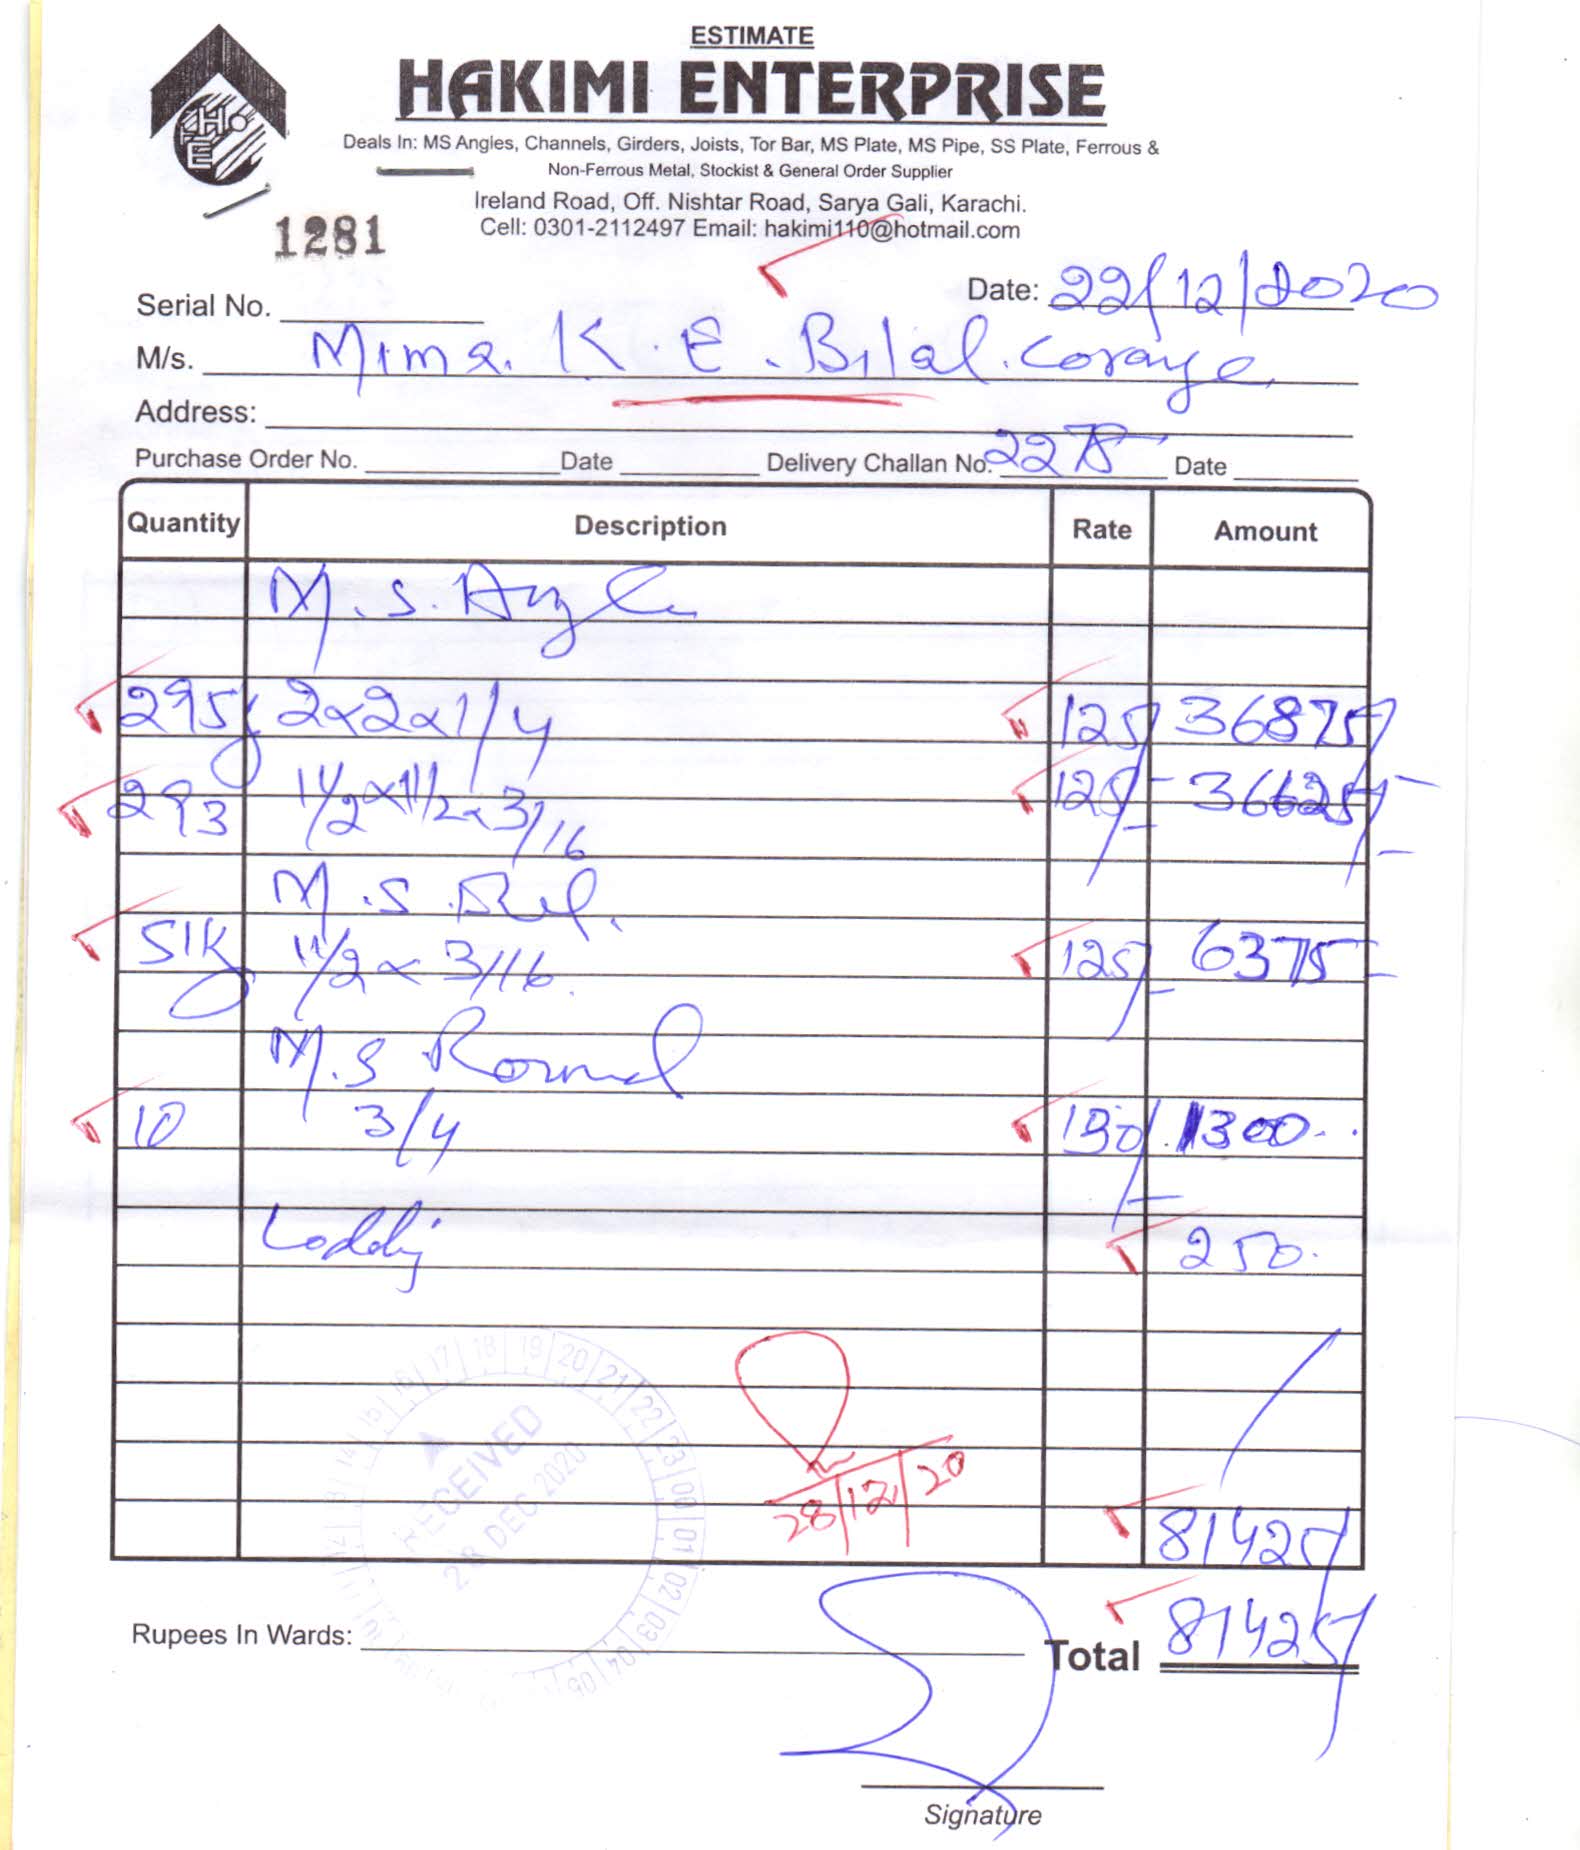 ESTIMATE
HAKIMI ENTERPRISE
Deals In: MS Angles, Channels, Girders, Joists, Tor Bar, MS Plate, MS Pipe, SS Plate, Ferrous &
Non-Ferrous Metal, Stockist & General Order Supplier
Ireland Road, Off. Nishtar Road, Sarya Gali, Karachi.
Cell: 0301-2112497 Email: hakimi110@hotmail.com
HE
1281
Date: 22/12/2020
Serial No.
M/s. K.E. Bilal.
Address:
Purchase Order No. Date Delivery Challan No. 2275 Date
Quantity Description Rate Amount
M.S. Angle
295kg 2x2x1/4 125/- 36875/-
293 1 1/2 x 1 1/2 x 3/16 125/- 36625/-
M.S.
51kg 1 1/2 x 3/16 125/- 6375/-
M.S Round
10 3/4 130/- 1300
250
RECEIVED
28 DEC 2020
28/12/20
81425/-
Rupees In Wards: Total 81425/-
Signature